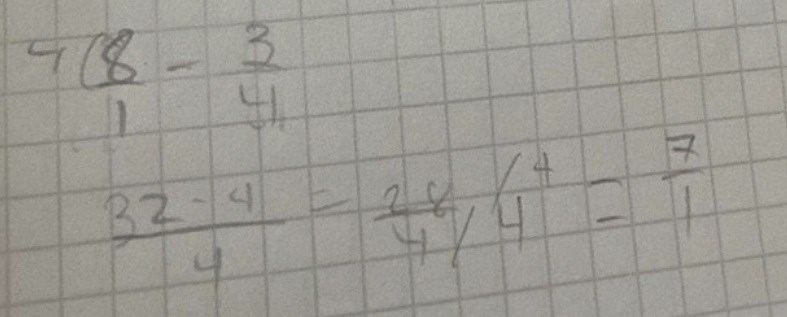 4(8/1 - 3/4
(32 - 4)/4 = 28/4 / 4/4 = 7/1